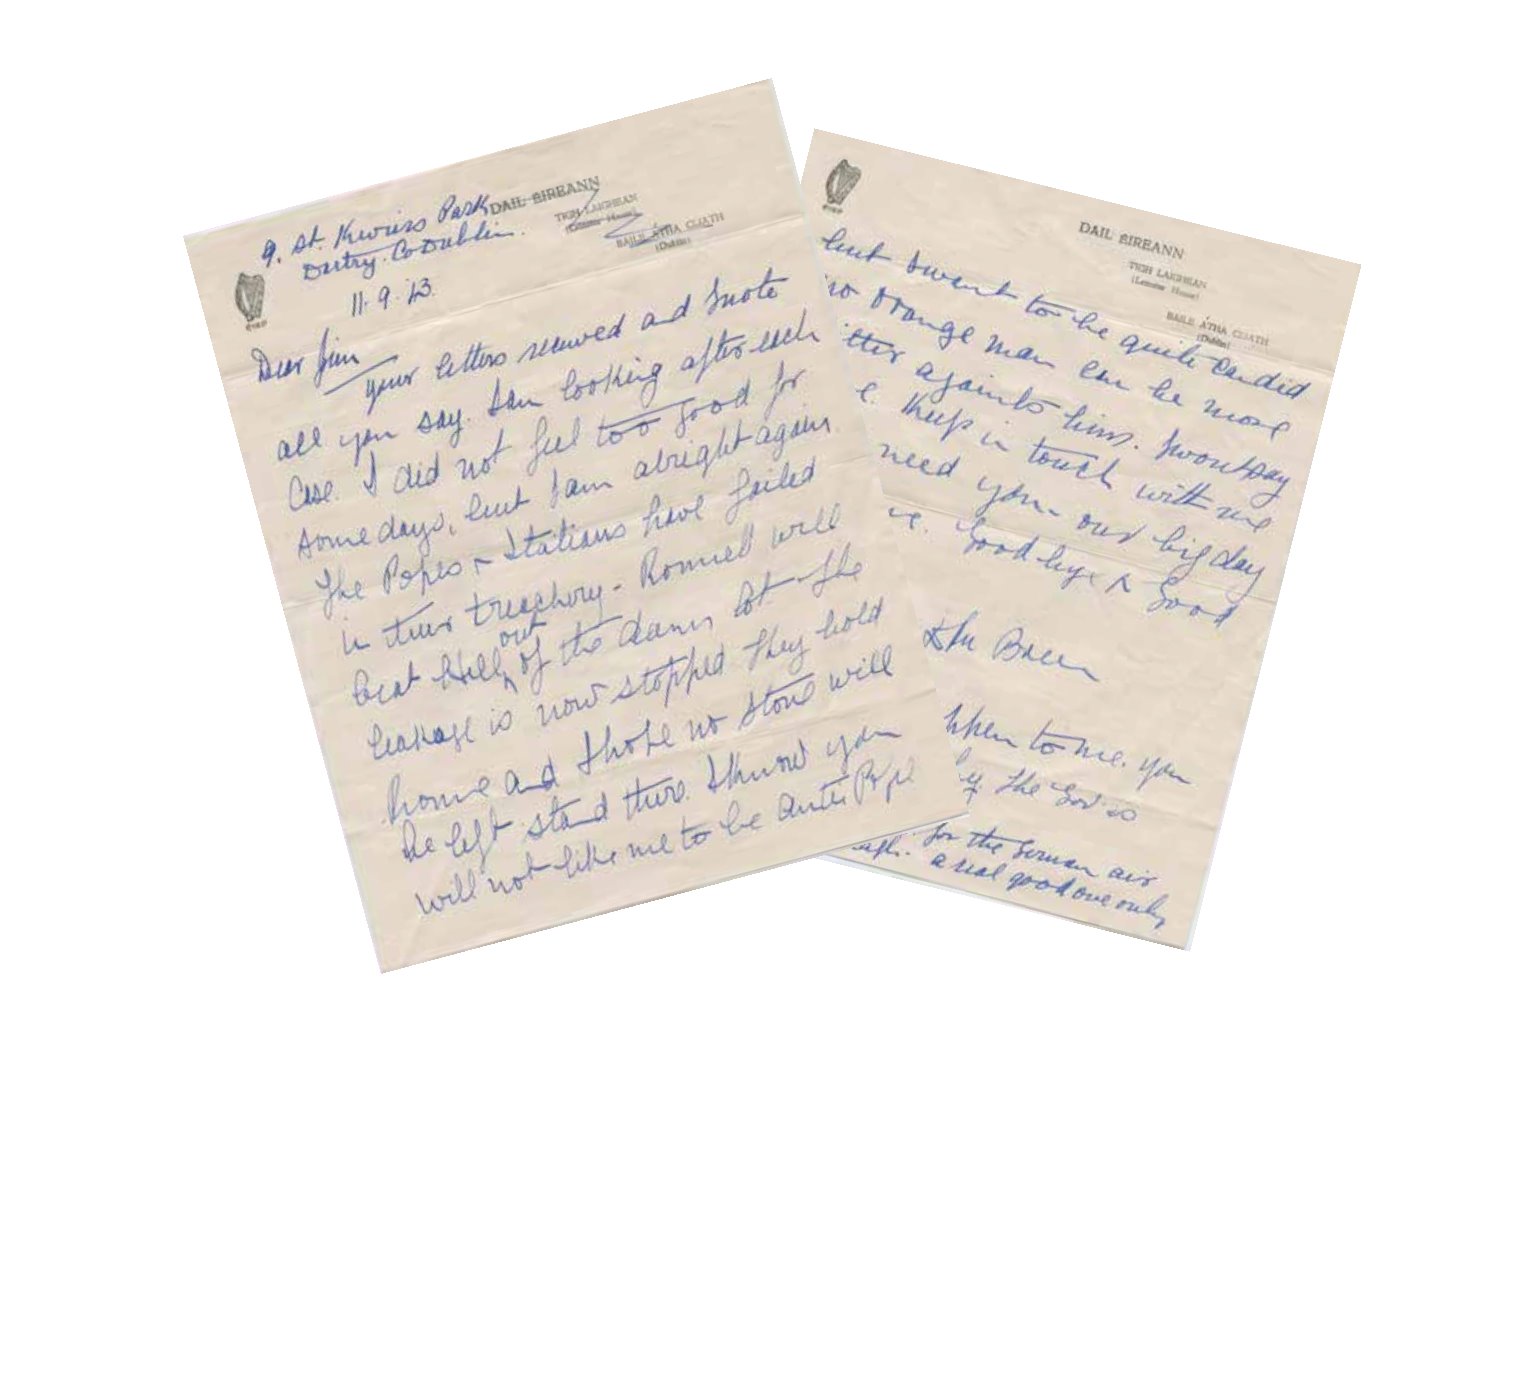 9. St. Kevins Park
Dartry. Co Dublin.
DAIL EIREANN
TIGH LAIGHEAN
(Leinster House)
BAILE ÁTHA CLIATH
(Dublin)
11.9.43.
Dear Jim
your letters received and I note
all you say. I am looking after each
case. I did not feel too good for
some days, but I am alright again
The Popes & Italians have failed
in their treachery - Rommel will
beat Hell out of the damn lot - the
leakage is now stopped they hold
Rome and I hope no stone will
be left stand there. I know you
will not like me to be anti Pope
DAIL EIREANN
TIGH LAIGHEAN
(Leinster House)
BAILE ÁTHA CLIATH
(Dublin)
but I want to be quite candid
no Orange man can be more
itter against him. I wont say
e. Keep in touch with me
need you - our big day
ve. Good bye & Good
Bren
to me. you
The Gov. so
for the German air
a real good one only